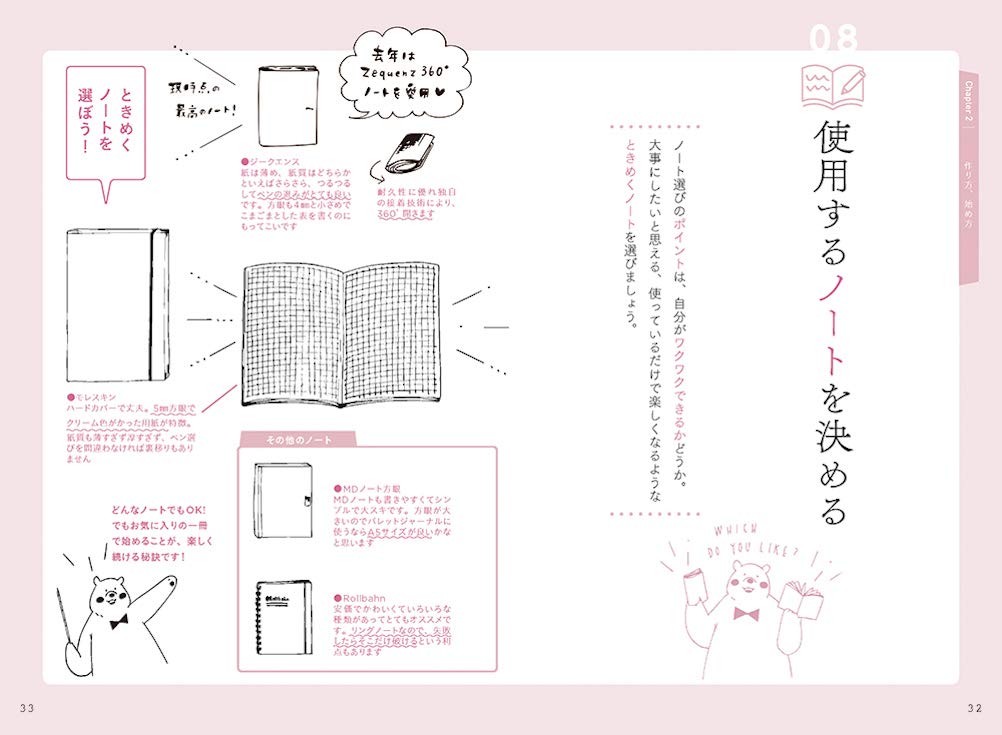 08
使用するノートを決める
Chapter 2
作り方、始め方
ノート選びのポイントは、自分がワクワクできるかどうか。
大事にしたいと思える、使っているだけで楽しくなるような
ときめくノートを選びましょう。
WHICH
DO YOU LIKE?
32
ときめく
ノートを
選ぼう!
現時点の
最高のノート!
去年は
Zequenz 360°
ノートを愛用♥
●ジークエンス
紙は薄め、紙質はどちらか
といえばさらさら、つるつる
してペンの滑りがとても良い
です。方眼も4mmと小さめで
こまごまとした表を書くのに
もってこいです
耐久性に優れ独自
の接着技術により、
360°開きます
●モレスキン
ハードカバーで丈夫。5mm方眼で
クリーム色がかった用紙が特徴。
紙質も薄すぎず厚すぎず、ペン選
びを間違わなければ裏移りもあり
ません
その他のノート
●MDノート方眼
MDノートも書きやすくてシン
プルで大スキです。方眼が大
きいのでバレットジャーナルに
使うならA5サイズが良いかな
と思います
●Rollbahn
安価でかわいくていろいろな
種類があってとてもオススメで
す。リングノートなので、失敗
したらそこだけ破けるという利
点もあります
どんなノートでもOK!
でもお気に入りの一冊
で始めることが、楽しく
続ける秘訣です!
33